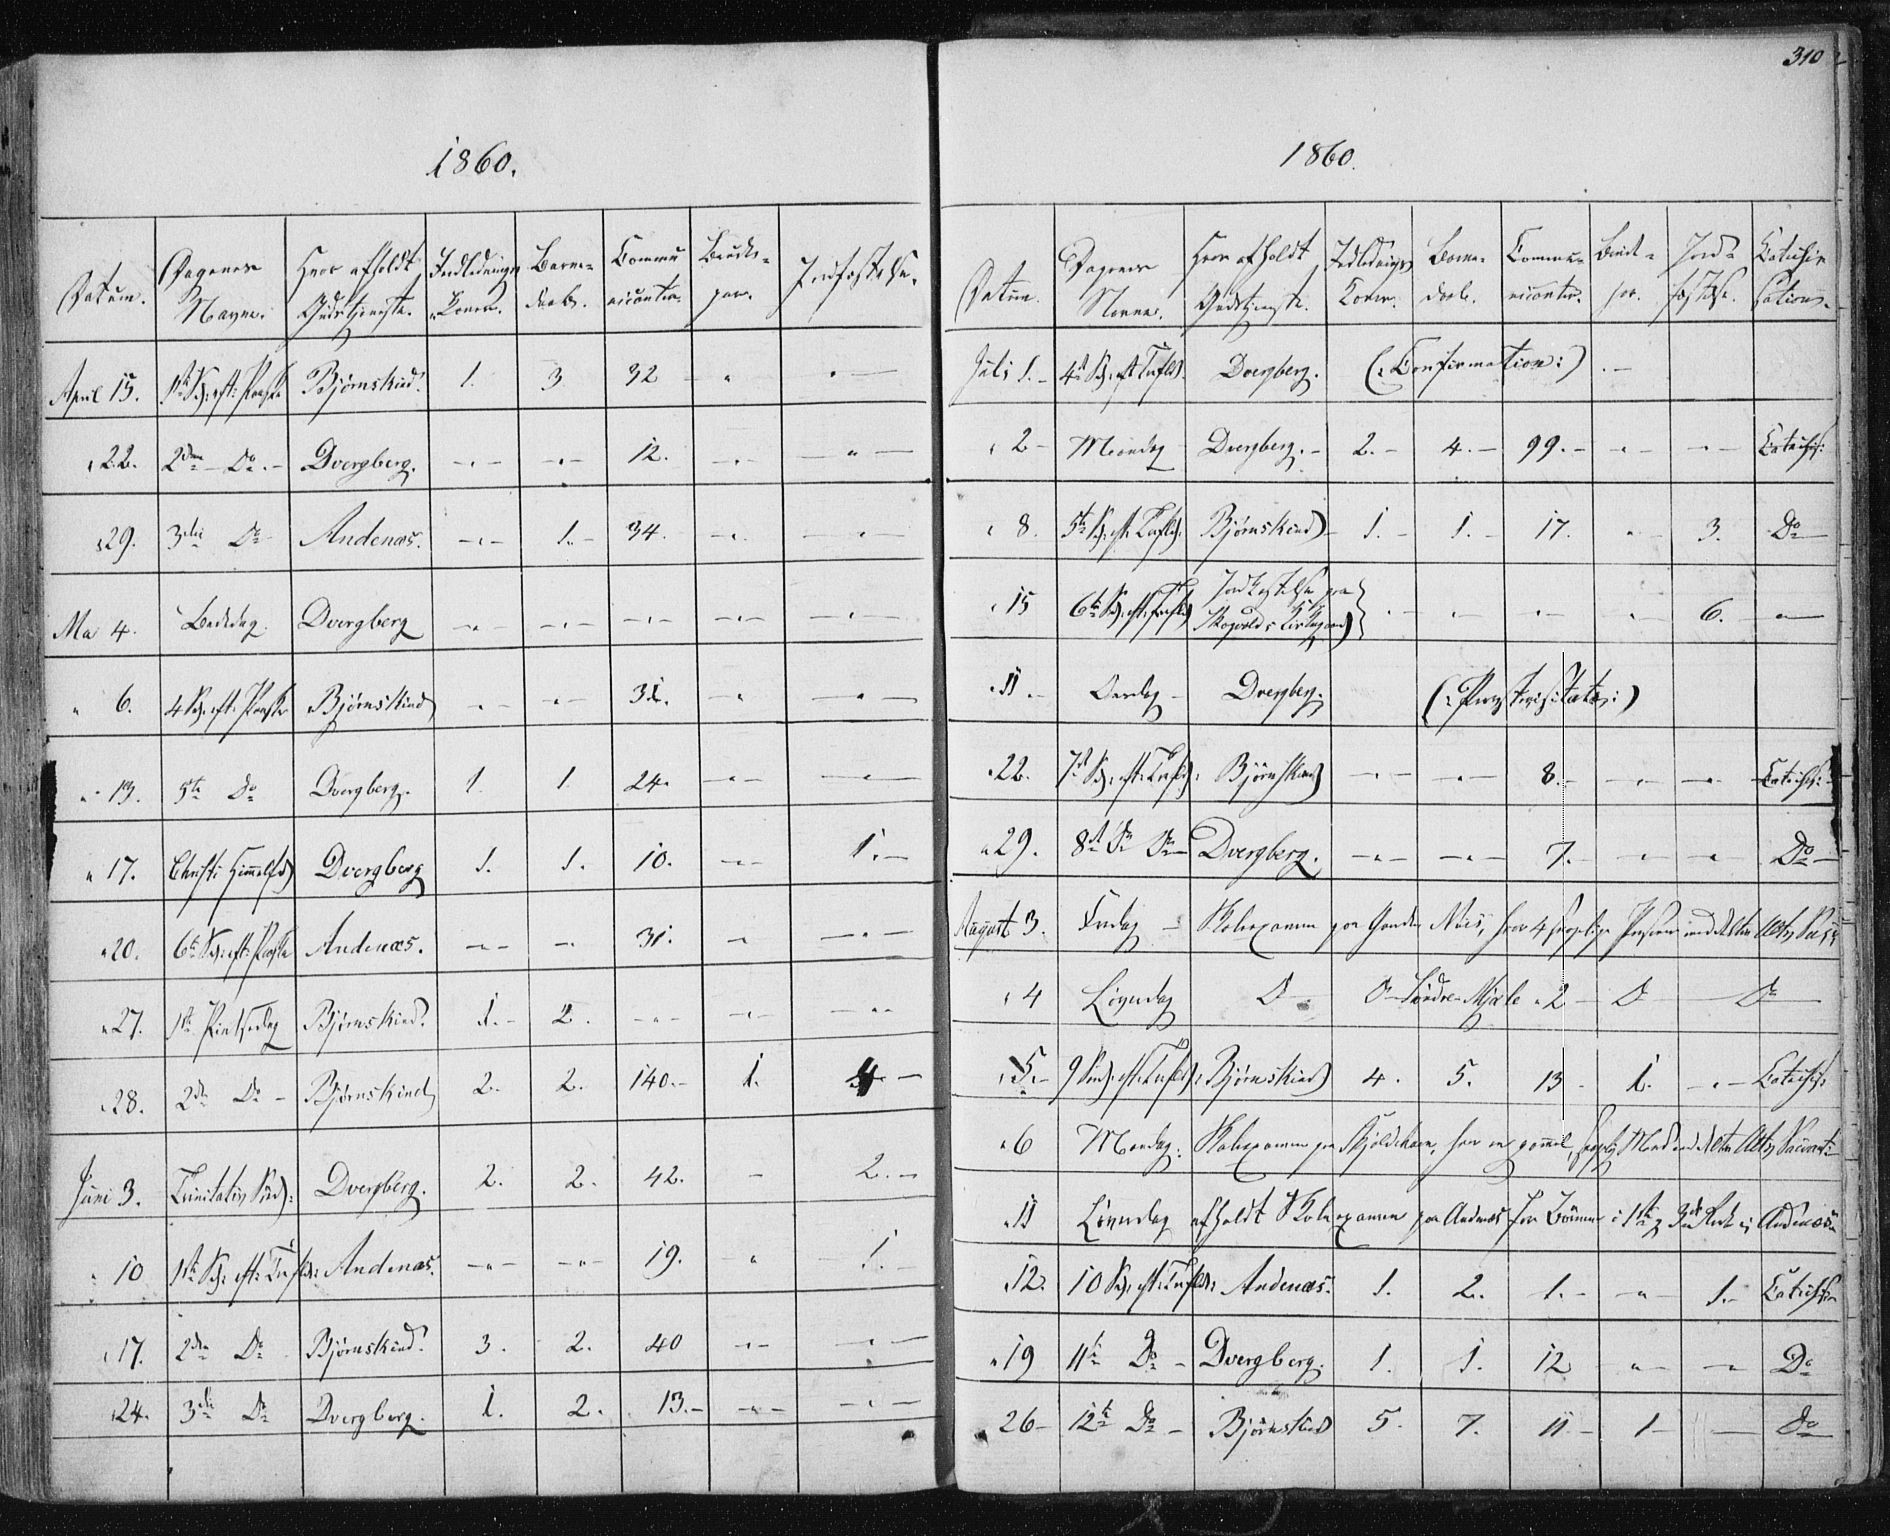 1860.
Datum. Dagenes Navne. Hvor afholdt Gudstjeneste. Indlednings Koner. Barne-daab. Communicanter. Brude-par. Jordfæstelse.
April 15. 1ste S: eft: Paaske Bjørnskind. 1. 3 32 " "
" 22. 2den Do. Dvergberg. " " 12. " "
" 29. 3die Do Andenæs. " 1. 34. " "
Mai 4. Bededag. Dvergberg " " " " "
" 6. 4 S: eft: Paaske Bjørnskind " " 31. " "
" 13. 5te Do Dvergberg. 1. 1. 24. " "
" 17. Christi Himmelfd Dvergberg 1. 1. 10. " 1.
" 20. 6te S: eft: Paaske Andenæs. " " 31. " "
" 27. 1ste Pintsedag Bjørnskind. 1. 2. " " "
" 28. 2den Do Bjørnskind 2. 2. 140. 1. 4
Juni 3. Trinitatis Sønd: Dvergberg. 2. 2. 42. " 2.
" 10 1ste S: eft: Trefold: Andenæs. " " 19. " 1.
" 17. 2den Do Bjørnskind. 3. 2. 40 " "
" 24. 3die Do Dvergberg. 1. 2. 13. " "
310
1860.
Datum. Dagenes Navne. Hvor afholdt Gudstjeneste. Indlednings Koner. Barne-daab. Communicanter. Brude-par. Jord-fæstelse. Catechisations.
Juli 1. 4de S: eft Trefold. Dvergberg. (: Confirmation :)
" 2 Mandag Dvergberg. 2. 4. 99. " " Catechis:
" 8. 5te S: eft: Trefold: Bjørnskind 1. 1. 17. " 3. Do
" 15 6te S: eft: Trefold Jordfæstelse paa Skogvolds Kirkegaard } " " " " 6. "
" 11. Onsdag Dvergberg. (: Provstevisitats :)
" 22. 7de S: eft: Trefold: Bjørnskind " " 8. " " Catechis:
" 29. 8de Do Do Dvergberg. " " 7. " " Do
August 3. Fredag Skoleexamen paa Næs, hvor 4 Personer Alterets
" 4 Løverdag Do Do Søndre-Mjæle 2 Do Do
" 5. 9 Sønd: eft: Trefold: Bjørnskind 4. 5. 13 1. " Catechis:
" 6 Mandag. Skoleexamen paa Skjoldehavn, hvor en gammel, Mand
" 11 Løverdag afholdt Skoleexamen paa Andenæs for Børnene i 1ste & 3die Andenæs
" 12. 10 S: eft: Trefold: Andenæs. 1. 2. 1. " 1. Catechis
" 19 11te Do Dvergberg. 1. 1. 12 " " Do
" 26 12te Do Bjørnskind 5. 7. 11 1 Do